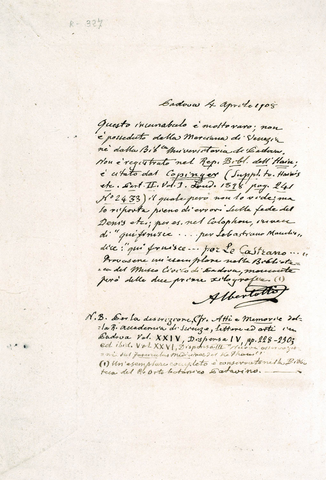 K-327
Padova 4 Aprile 1908
Questo incunabulo è molto raro; non
è posseduto dalla Marciana di Venezia
nè dalla Bibca Universitaria di Padova,
Non è registrato nel Rep. Bibl. dell'Hain;
è citato dal Copinger (Supplto Hain's
etc. Part. II. Vol. I. Lond. 1898 pag. 241
No 2433) il quale però non lo vide; ma
lo riporta pieno di errori sulla fede del
Denis etc; per es. nel Colophon, invece
di "qui finisce ... per Sebastiano Manilio,
dice: "qui fruisce ... por Le Castrano ..."
Provasene un esemplare nella Bibliote
ca del Museo Civico di Padova, mancante
però delle due prime xilografie. (1)
Albertotti
N.B. Per la descrizione, Cfr. Atti e Memorie del
la R. accademia di scienze, lettere ed arti in
Padova Vol. XXIV, Dispensa IV, pp. 228-230;
ed ibid. Vol. XXVI, Dispensa
(1) Un esemplare completo è conservato nella Biblio
teca del R. Orto botanico Patavino.